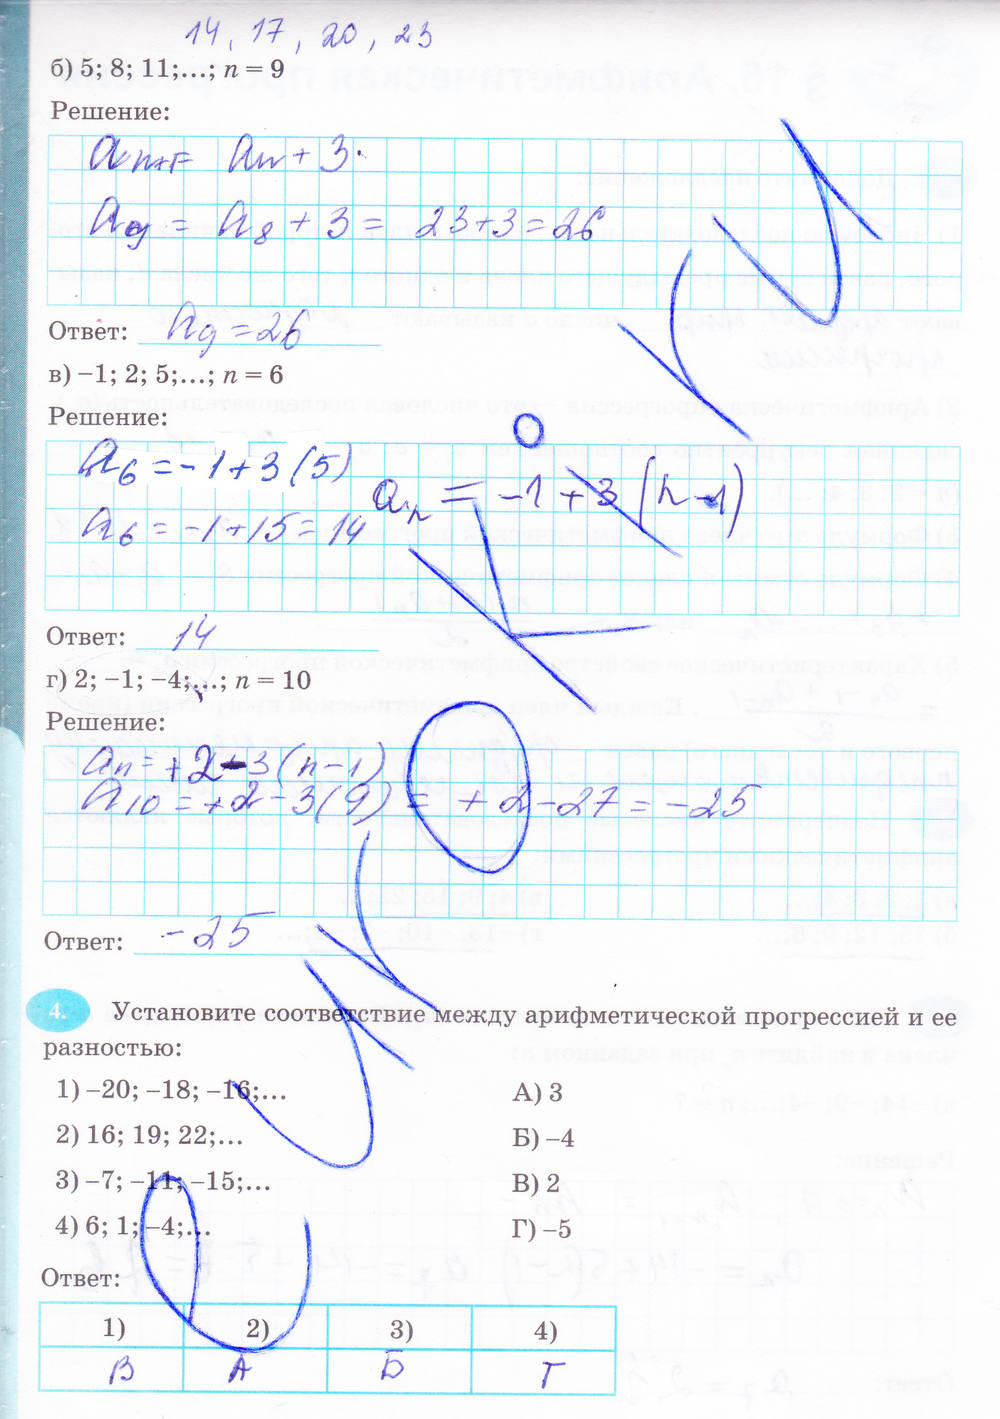 14, 17, 20, 23
б) 5; 8; 11;...; n = 9
Решение:
an+1= an + 3.
a9 = a8 + 3 = 23+3=26
Ответ: a9 = 26
в) –1; 2; 5;...; n = 6
Решение:
a6 = -1 + 3 (5)
an = -1 + 3 (n-1)
a6 = -1+15 = 14
Ответ: 14
г) 2; –1; –4;...; n = 10
Решение:
an = +2 - 3 (n-1)
a10 = +2 - 3(9) = +2-27 = -25
Ответ: -25
4. Установите соответствие между арифметической прогрессией и ее
разностью:
1) –20; –18; –16;... А) 3
2) 16; 19; 22;... Б) –4
3) –7; –11; –15;... В) 2
4) 6; 1; –4;... Г) –5
Ответ:
1) 2) 3) 4)
В А Б Г